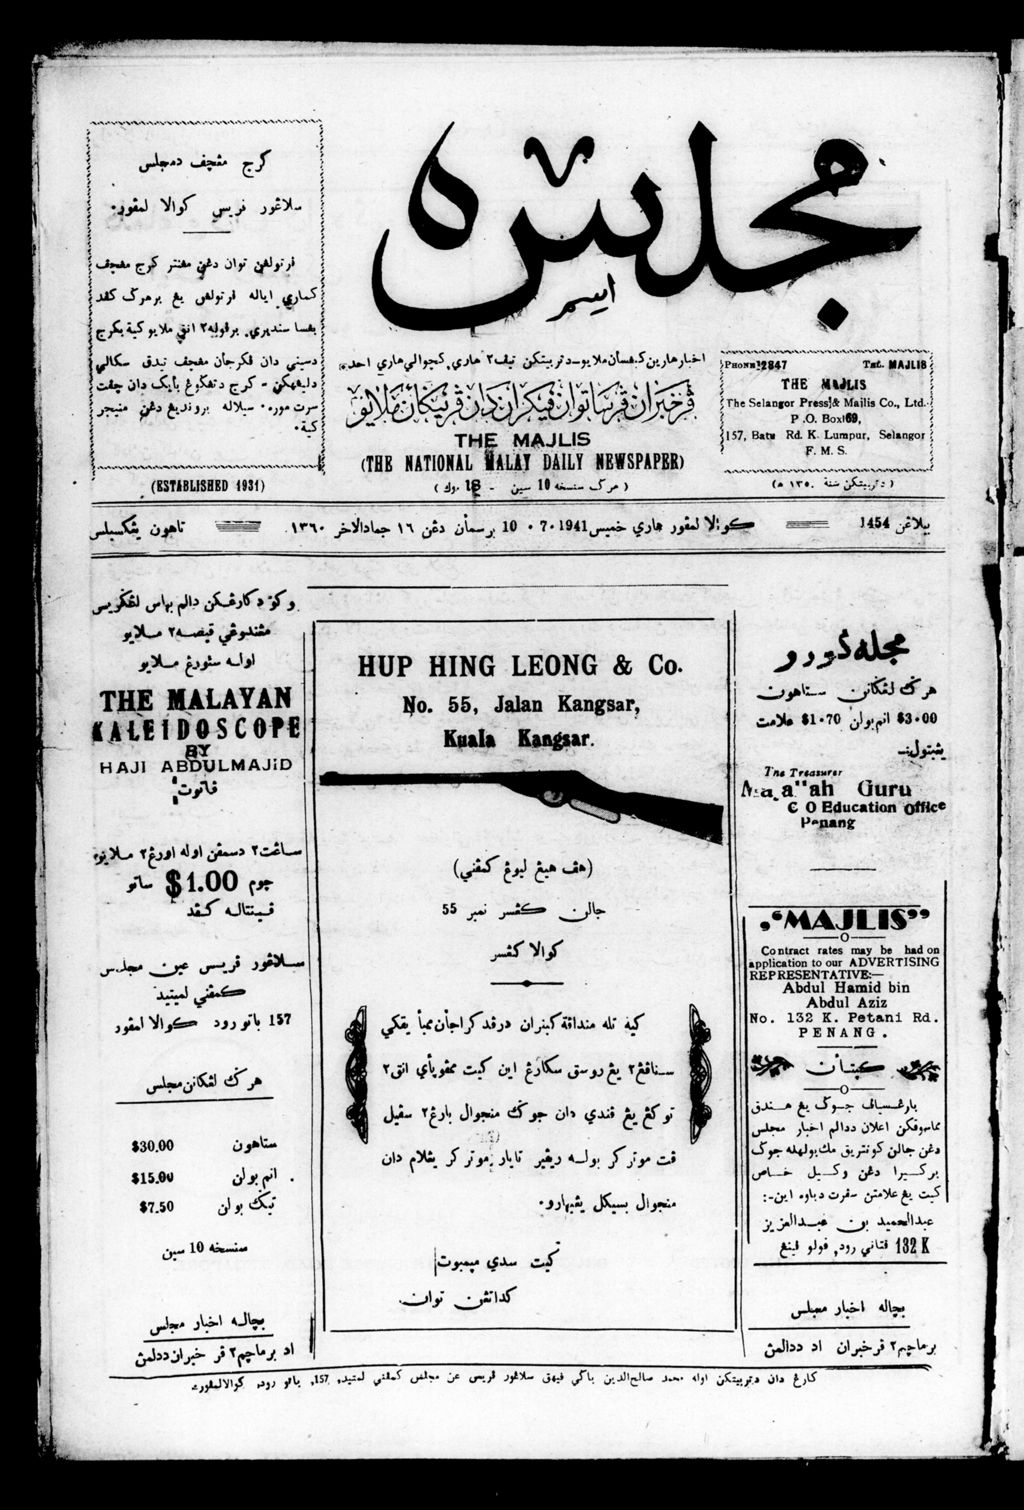 كرج مڠچف دمجلس
سلاڠور فريس كوالا لمڤور.
ڤرتولڠن توان دڠن مڠنتر كرج مڠچف
كماري اياله ڤرتولڠن يڠ برهرݢ كڤد
دسيني دان ڤكرجان مڠچف تيدق سكالي
كيت.
(ESTABLISHED 1931)
مجلس
اخبار هارين كبڠسأن ملايو - دتربيتكن تيڤ٢ هاري، كچوالي هاري احد
ڤرخبران ڤرساتوان ڤيكيران دان ڤرݢيكن ملايو
THE MAJLIS
(THE NATIONAL MALAY DAILY NEWSPAPER)
(هرݢ سنسخه 10 سين - 18 موك)
PHONE: 2847 TEL. MAJLIS
THE MAJLIS
The Selangor Press & Majlis Co., Ltd.
P.O. Box 69,
157, Batu Rd. K. Lumpur, Selangor
F. M. S.
(دتربيتكن سنة ١٣٥٠ ه)
بيلاڠن 1454
كوالا لمڤور هاري خميس 10.7.1941 برسمأن دڠن ١٦ جمادالاخر ١٣٦٠
تاهون يڠكسبلس
دالم بهاس اڠݢريس
مڠندوڠي قيصه٢ ملايو
اوله سئورڠ ملايو
THE MALAYAN
KALEIDOSCOPE
BY
HAJI ABDULMAJID
ڤاتوت
ساڠت٢ دسمڤن اوله اورڠ٢ ملايو
چوم $1.00 ساتو
ڤينتاله كڤد
سلاڠور ڤريس عين مجلس
كمڤني لميتيد
157 باتو رود كوالا لمڤور
هرݢ لڠݢانن مجلس
ستاهون $30.00
انم بولن $15.00
تيݢ بولن $7.50
سنسخه 10 سين
بچاله اخبار مجلس
اد برماچم٢ ڤرخبران ددالمڽ
HUP HING LEONG & Co.
No. 55, Jalan Kangsar,
Kuala Kangsar.
(هڤ هيڠ ليوڠ كمڤني)
جالن كڠسر نمبر 55
كوالا كڠسر
كيت تله منداڤة كبنران درڤد كراجأن ممبأيقكي
سناڤڠ٢ يڠ روسق سكارڠ اين كيت ممڤوڽأي انق٢
توكڠ يڠ ڤندي دان جوݢ منجوال بارڠ٢ سڤيل
ڤت موتركر بوله ريڤير تاير موتركر يڠلام دان
منجوال بسيكل يڠبهارو.
كيت سدي ميمبوت
كداتڠن توان.
مجله ݢورو
هرݢ لڠݢانن ستاهون
$3.00 انم بولن $1.70 علامت
يڠبتول:-
The Treasurer
Majallah Guru
C O Education Office
Penang
"MAJLIS"
O
Contract rates may be had on
application to our ADVERTISING
REPRESENTATIVE:—
Abdul Hamid bin
Abdul Aziz
No. 132 K. Petani Rd.
PENANG.
كڽتأن
O
بارڠسياڤ جوݢ يڠ هندق
ماسوقكن اعلان ددالم اخبار مجلس
دڠن جالن كونتريق مك بولهله جوݢ
بركيرا دڠن وكيل خاص
كيت يڠ علامتڽ سڤرت دباوه اين:-
عبدالحميد بن عبدالعزيز
132 K ڤتاني رود، ڤولو ڤينڠ
بچاله اخبار مجلس
برماچم٢ ڤرخبران اد ددالمڽ
كارڠ دان دتربيتكن اوله محمد صالح الدين باݢي ڤيهق سلاڠور ڤريس عن مجلس كمڤني لمتيد، 157، باتو رود، كوالا لمڤور.